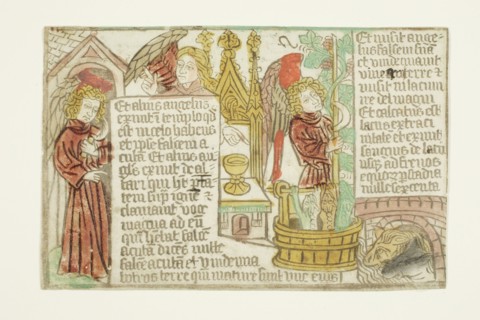 Et alius angelus
exiuit templo qd
est in celo habens
et ipse falcem a
cutã Et alius an
gls exiuit de al
tari qui ht ptã
tem sup ignẽ et
clamauit voce
magna ad eũ
qui hebat falcẽ
acutã dicẽs mitte
falcẽ acutã et vindemia
botros terre qui mature sunt vue eius
Et misit ange
lus falcem suã
et vindemiauit
vineã terre et
misit in lacum
ire dei magni
Et calcatus est
lacus extra ci
uitatẽ et exiuit
sanguis de lacu
usqz ad frenos
equorz p stadia
mille sexcenta